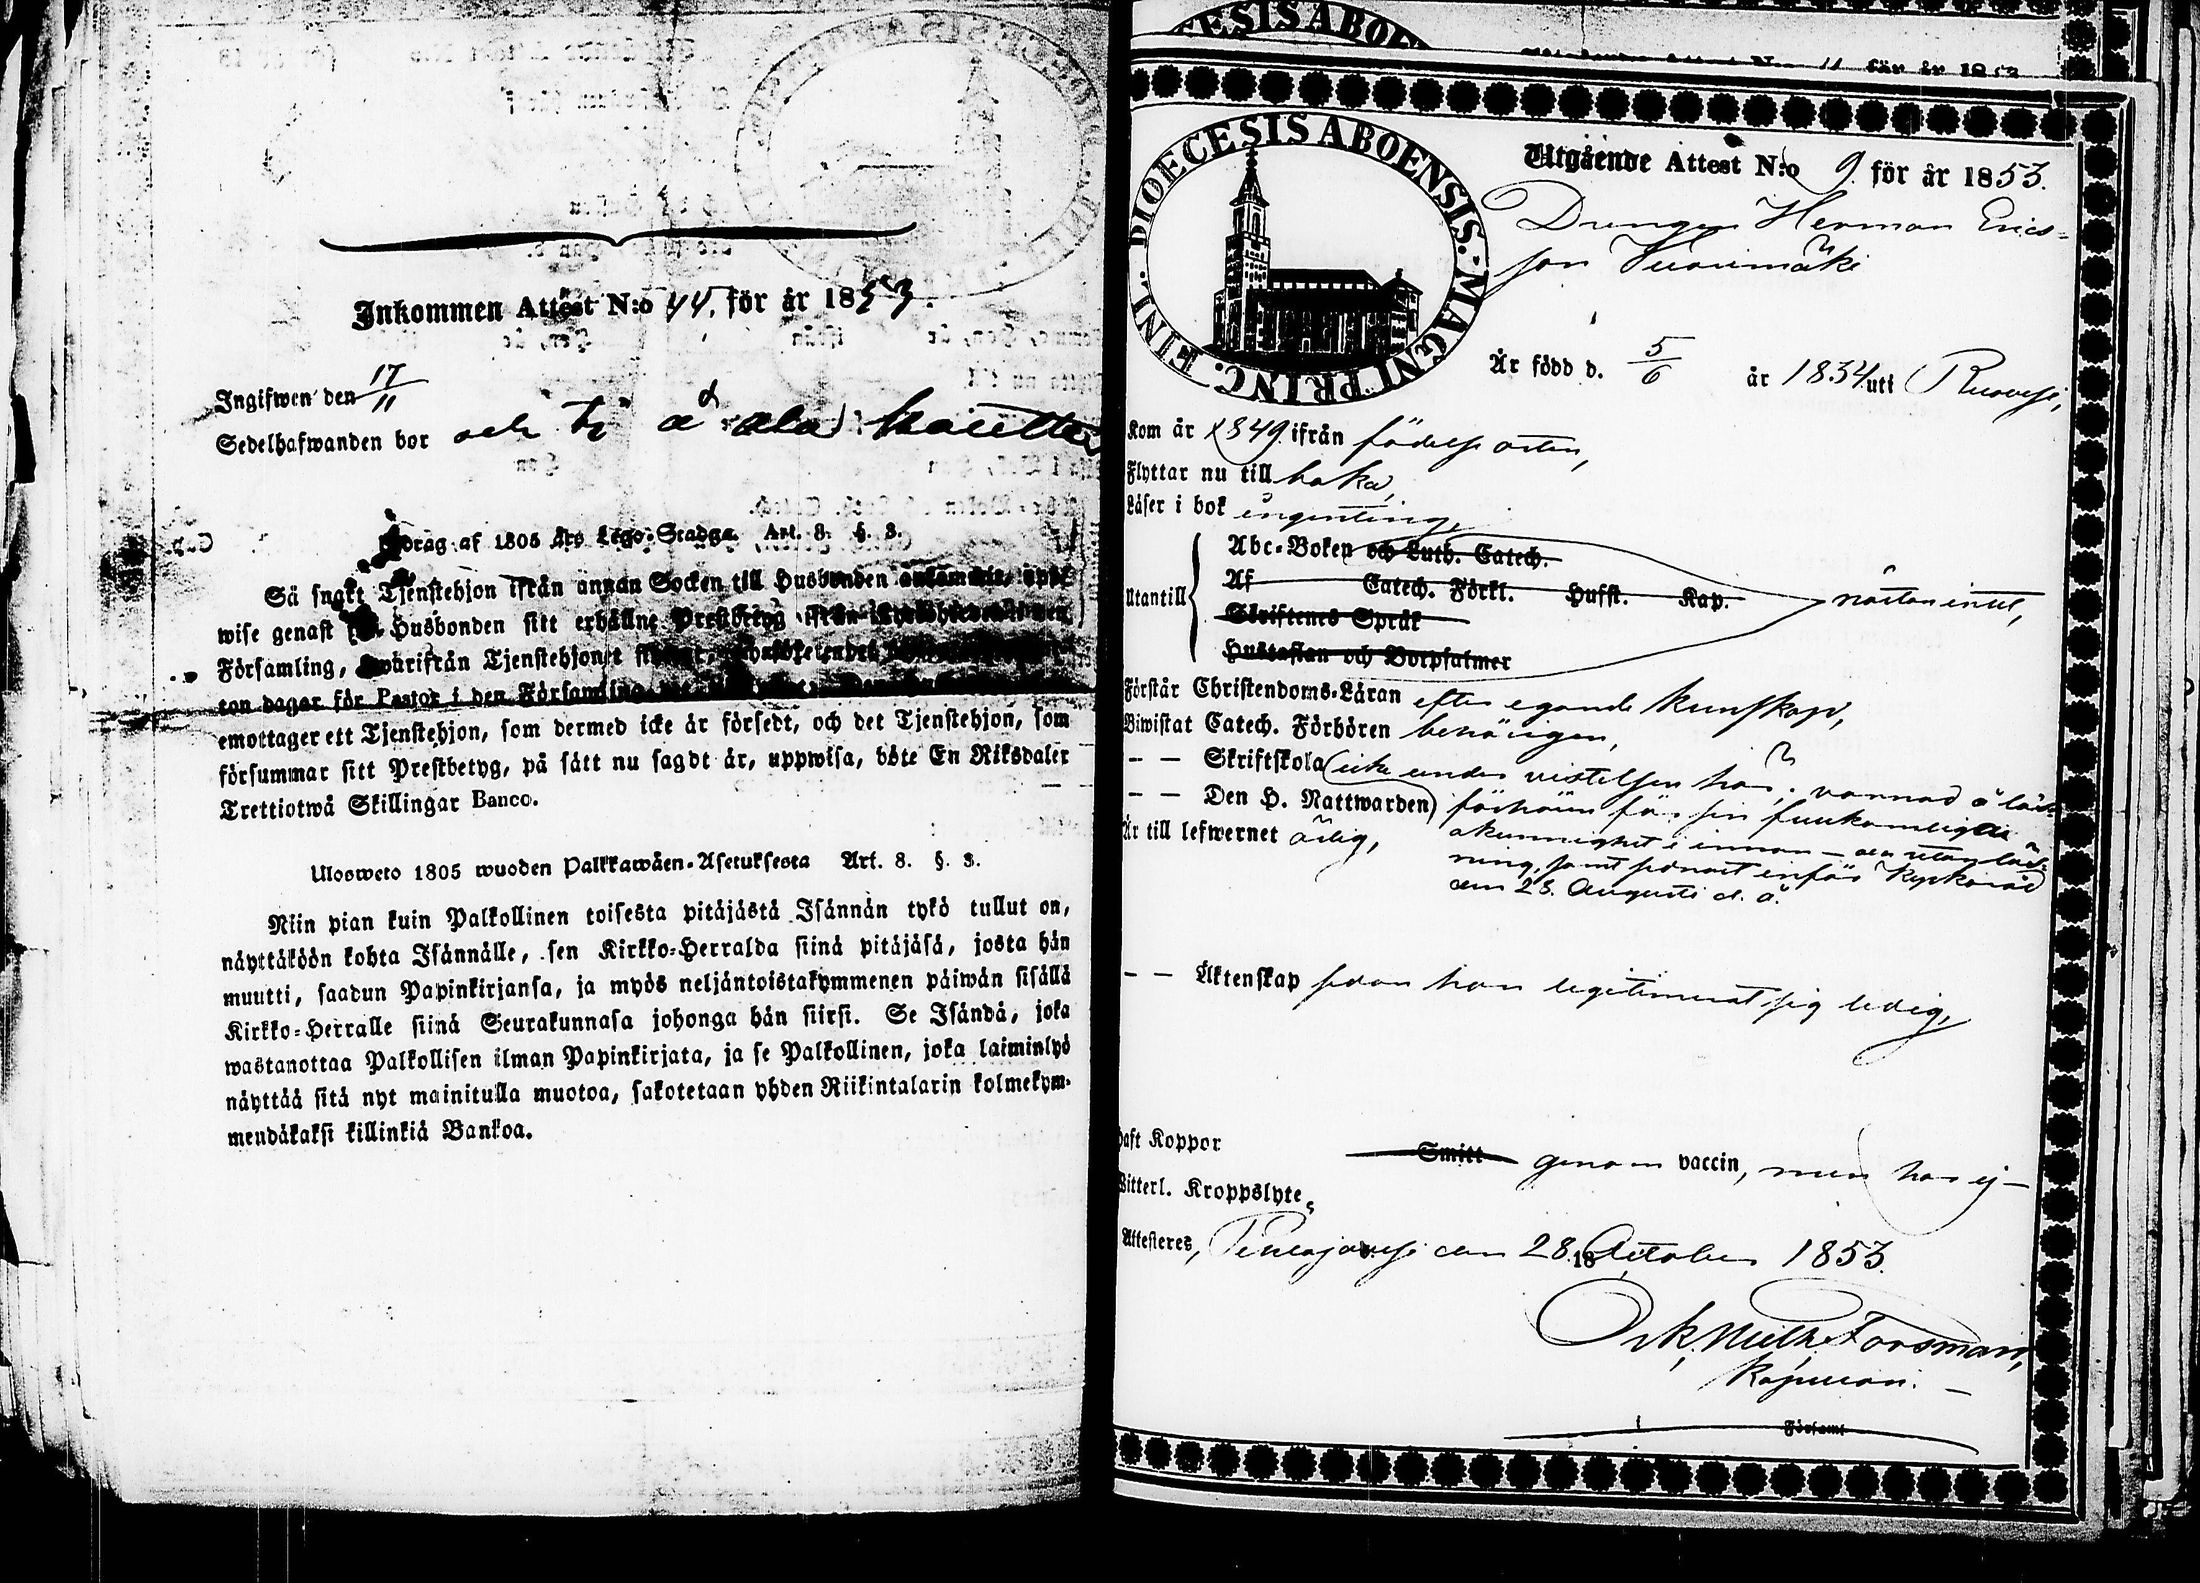 Inkommen Attest N:o 44. för år 1853.
Ingifwen den 17/11
Sedelhafwanden bor och
Utdrag af 1805 års Lego-Stadga. Art. 8. §. 3.
Så snart Tjenstehjon ifrån annan Socken till Husbonden
wise genast Husbonden sitt erhållne Prestbetyg ifrån
Församling, hwarifrån Tjenstehjonet
ton dagar för Pastor i den Församling
emottager ett Tjenstehjon, som dermed icke är försedt, och det Tjenstehjon, som
försummar sitt Prestbetyg, på sått nu sagdt är, uppwisa, böte En Riksdaler
Trettiotwå Skillingar Banco.
Ulosweto 1805 wuoden Palkkawäen-Asetuksesta Art. 8. §. 3.
Niin pian kuin Palkollinen toisesta pitäjästä Isännän tykö tullut on,
näyttäköön kohta Isännälle, sen Kirkko-Herralda siinä pitäjäsä, josta hän
muutti, saadun Papinkirjansa, ja myös neljäntoistakymmenen päiwän sisällä
Kirkko-Herralle siinä Seurakunnasa johonga hän siirsi. Se Isändä, joka
wastanottaa Palkollisen ilman Papinkirjata, ja se Palkollinen, joka laiminlyö
näyttää sitä nyt mainitulla muotoa, sakotetaan yhden Riikintalarin kolmekym-
mendäkaksi killinkiä Bankoa.
DIOECESIS ABOENSIS. MAGNI PRINC. FINL.
Utgående Attest N:o 9. för år 1853.
Drengen Herman Erics-
son Vuorimäki
Är född d. 5/6 år 1834 uti Ruovesi,
Kom år 1849 ifrån födelse orten,
Flyttar nu till baka,
Läser i bok ingenting,
Utantill
Abc-Boken och Luth. Catech.
Af Catech. Förkl. Hufst. Kap.
Skriftenes Språk
Hustaflan och Botpsalmer
nästan intet,
Förstår Christendoms-Läran efter egande kunskap,
Biwistat Catech. Förhören behörigen,
– – Skriftskola icke under vistelsen här; varnad å läse-
– – Den H. Nattwarden förhören för sin fullkomliga
okunnighet i innan- och utan läs-
ning, samt sednast inför Kyrkoråd
den 28 Augusti d. å.
Är till lefwernet ärlig,
– – Äktenskap sedan han legitimerat sig ledig,
Haft Koppor Smitt genom vaccin, men har ej –
Witterl. Kroppslyte
Attesteres, den 28 October 1853.
18
Osk. Wilh. Forsman,
Kapellan. –
Församl